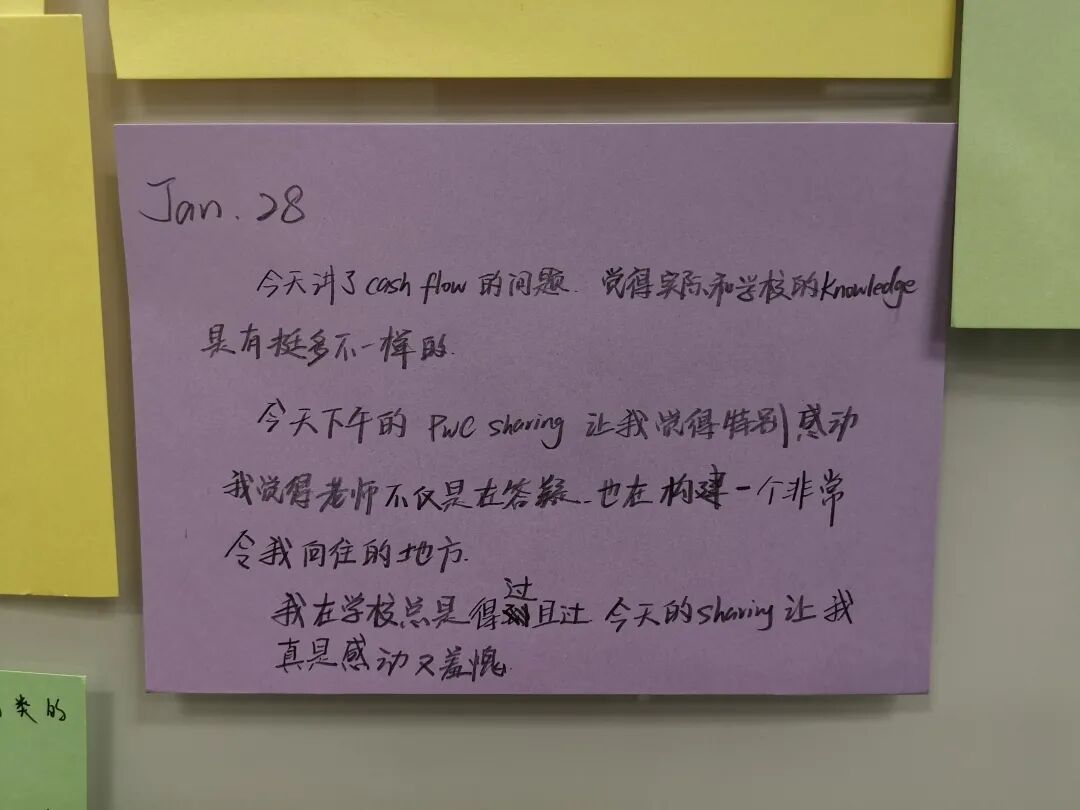 Jan. 28
今天讲了 cash flow 的问题. 觉得实际和学校的 knowledge
是有挺多不一样的.
今天下午的 PwC sharing 让我觉得特别感动
我觉得老师不仅是在答疑. 也在构建一个非常
令我向往的地方.
我在学校总是得过且过 今天的 sharing 让我
真是感动又羞愧.
类的